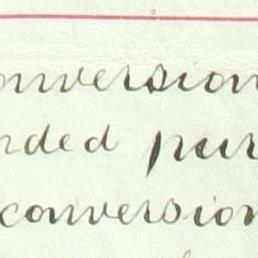 onversion
nded pur
conversion